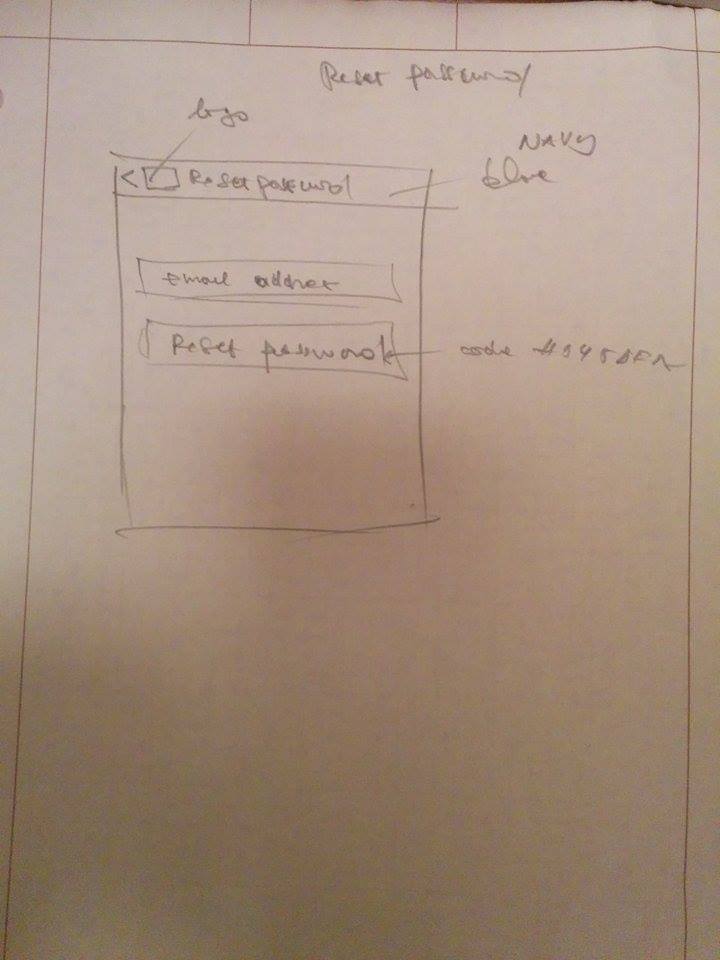 Reset password
logo
NAVY
blue
< Reset password
Email address
Reset password
code